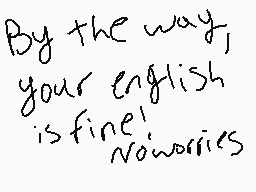 By the way,
your english
is fine!
No worries